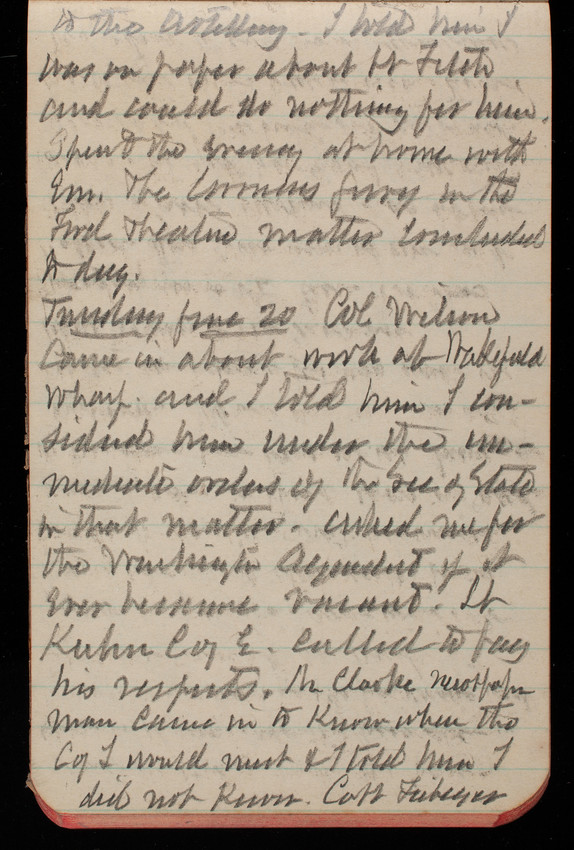 to the Artillery. I told him I
was on paper about Lt Fitch
and could do nothing for him.
Spent the evening at home with
Em. The Coroners jury in the
Ford Theatre matter concluded
to day.
Tuesday June 20 Col Wilson
came in about work at Wakefield
Wharf and I told him I con-
sidered him under the im-
mediate orders of the Sec of State
in that matter. asked me for
the Washington Aqueduct if it
ever became vacant. Lt
Kuhn Coy E. called to pay
his respects. Mr Clarke newspaper
man came in to know when the
Coy I would meet & I told him I
did not know. Capt Fiebeger